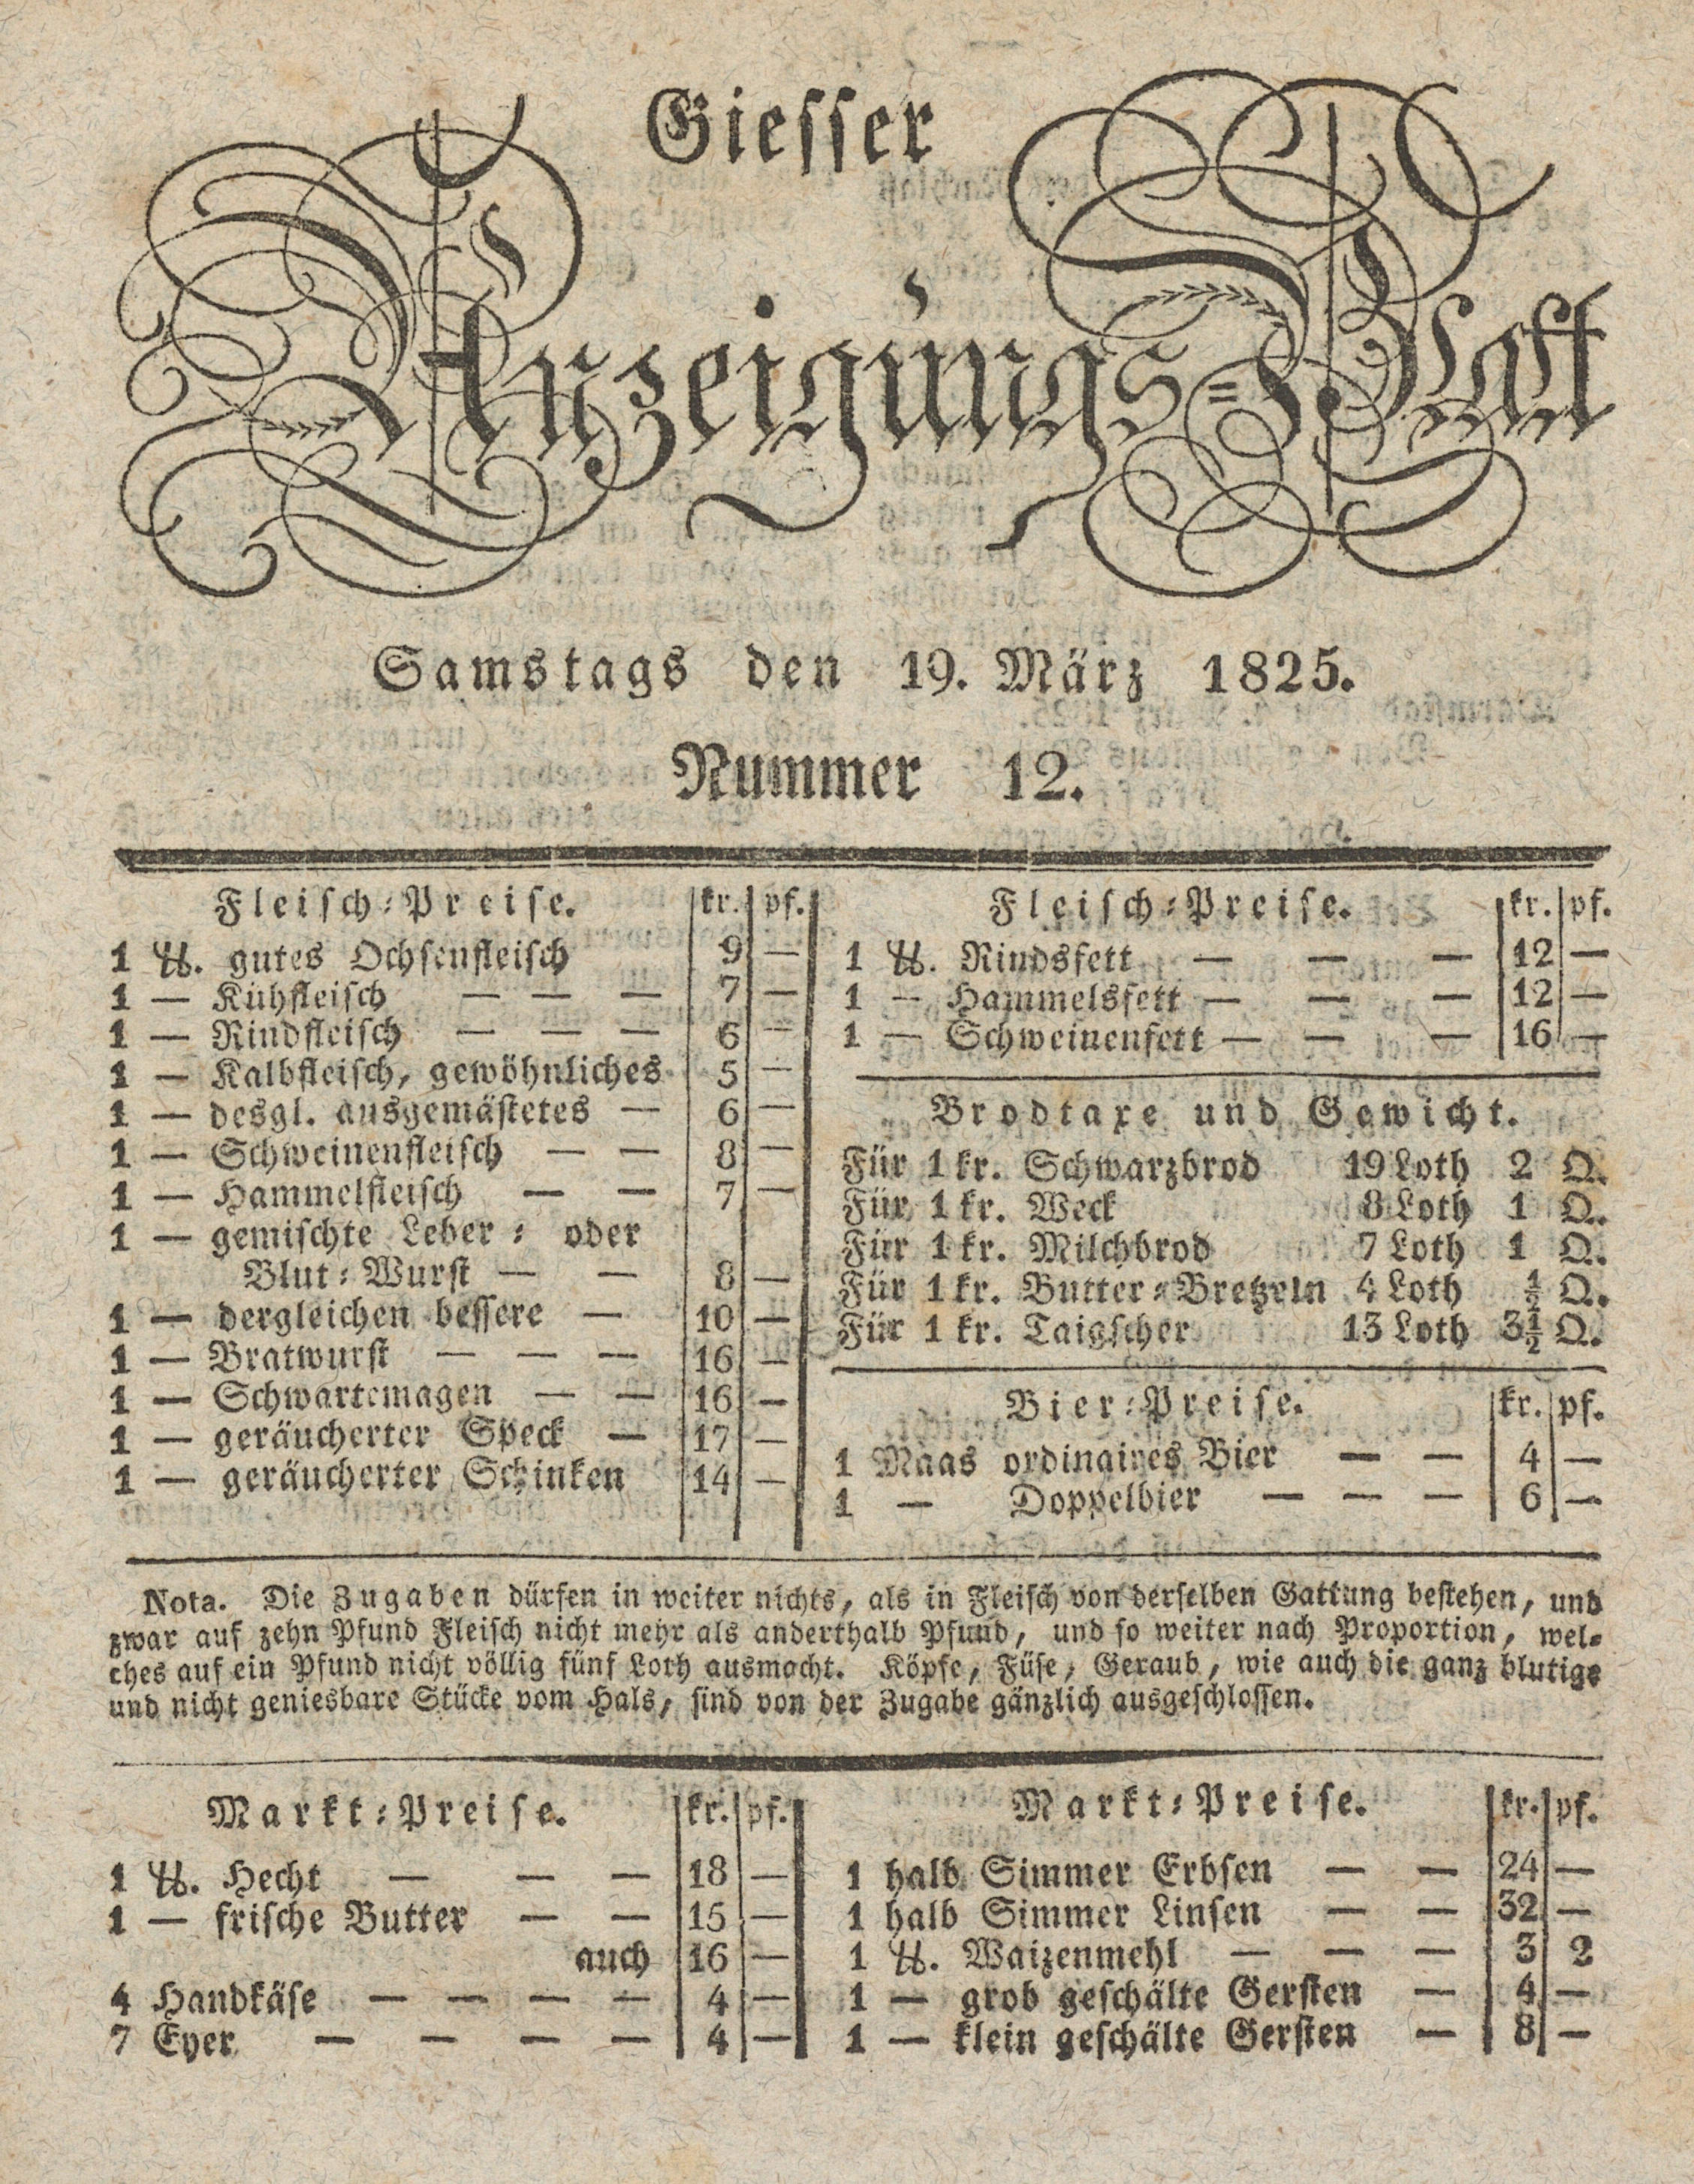 Giesser
Anzeigungs-Blatt
Samstags den 19. März 1825.
Nummer 12.
Fleisch-Preise. kr. pf.
1 ℔. gutes Ochsenfleisch 9 —
1 — Kühfleisch — — — 7 —
1 — Rindfleisch — — — 6 —
1 — Kalbfleisch, gewöhnliches 5 —
1 — desgl. ausgemästetes — 6 —
1 — Schweinenfleisch — — 8 —
1 — Hammelfleisch — — 7 —
1 — gemischte Leber- oder
Blut-Wurst — — 8 —
1 — dergleichen bessere — 10 —
1 — Bratwurst — — — 16 —
1 — Schwartemagen — — 16 —
1 — geräucherter Speck — 17 —
1 — geräucherter Schinken 14 —
Fleisch-Preise. kr. pf.
1 ℔. Rindsfett — — — 12 —
1 — Hammelsfett — — — 12 —
1 — Schweinenfett — — — 16 —
Brodtaxe und Gewicht.
Für 1 kr. Schwarzbrod 19 Loth 2 Q.
Für 1 kr. Weck 8 Loth 1 Q.
Für 1 kr. Milchbrod 7 Loth 1 Q.
Für 1 kr. Butter-Bretzeln 4 Loth ½ Q.
Für 1 kr. Taigscher 13 Loth 3½ Q.
Bier-Preise. kr. pf.
1 Maas ordinaires Bier — — 4 —
1 — Doppelbier — — — 6 —
Nota. Die Zugaben dürfen in weiter nichts, als in Fleisch von derselben Gattung bestehen, und
zwar auf zehn Pfund Fleisch nicht mehr als anderthalb Pfund, und so weiter nach Proportion, wel-
ches auf ein Pfund nicht völlig fünf Loth ausmacht. Köpfe, Füse, Geraub, wie auch die ganz blutige
und nicht geniesbare Stücke vom Hals, sind von der Zugabe gänzlich ausgeschlossen.
Markt-Preise. kr. pf.
1 ℔. Hecht — — — 18 —
1 — frische Butter — — 15 —
auch 16 —
4 Handkäse — — — — 4 —
7 Eyer — — — — 4 —
Markt-Preise. kr. pf.
1 halb Simmer Erbsen — — 24 —
1 halb Simmer Linsen — — 32 —
1 ℔. Waizenmehl — — — 3 2
1 — grob geschälte Gersten — 4 —
1 — klein geschälte Gersten — 8 —